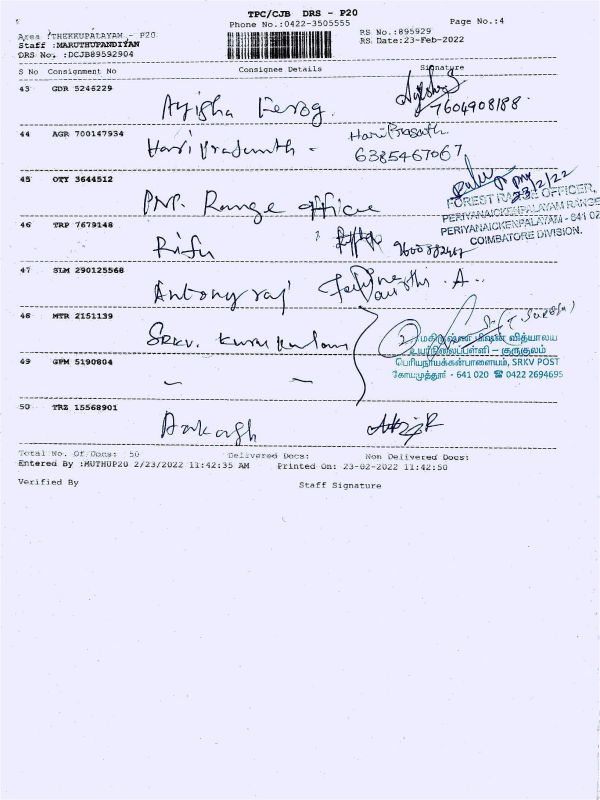 TPC/CJB DRS - P20
Phone No.:0422-3505555
Page No.:4
Area :THEKKUPALAYAM - P20
RS No.:895929
Staff :MARUTHUPANDIYAN
RS Date:23-Feb-2022
DRS No. :DCJB89592904
S No Consignment No Consignee Details Signature
43 GDR 5246229
Ayisha Feroz.
7604908188.
44 AGR 700147934
Hari Prasanth -
Hari Prasath
6385467067
45 OTY 3644512
PNP. Range office
23/2/22
FOREST RANGE OFFICER,
PERIYANAICKENPALAYAM RANGE
PERIYANAICKENPALAYAM - 641 02
COIMBATORE DIVISION.
46 TRP 7679148
Rifu
47 SLM 290125568
Antonyraj
48 MTR 2151139
SRKV. Gurukulam
வித்யாலய
உயர்நிலைப்பள்ளி - குருகுலம்
பெரியநாயக்கன்பாளையம், SRKV POST
கோயமுத்தூர் - 641 020 ☎ 0422 2694695
49 GPM 5190804
50 TRZ 15568901
Aakash
Total No. Of Docs: 50 Delivered Docs: Non Delivered Docs:
Entered By :MUTHUP20 2/23/2022 11:42:35 AM Printed On: 23-02-2022 11:42:50
Verified By Staff Signature